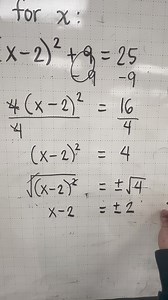 for x:
(x-2)² + 9 = 25
-9 -9
4(x-2)² / 4 = 16 / 4
(x-2)² = 4
√(x-2)² = ±√4
x-2 = ±2